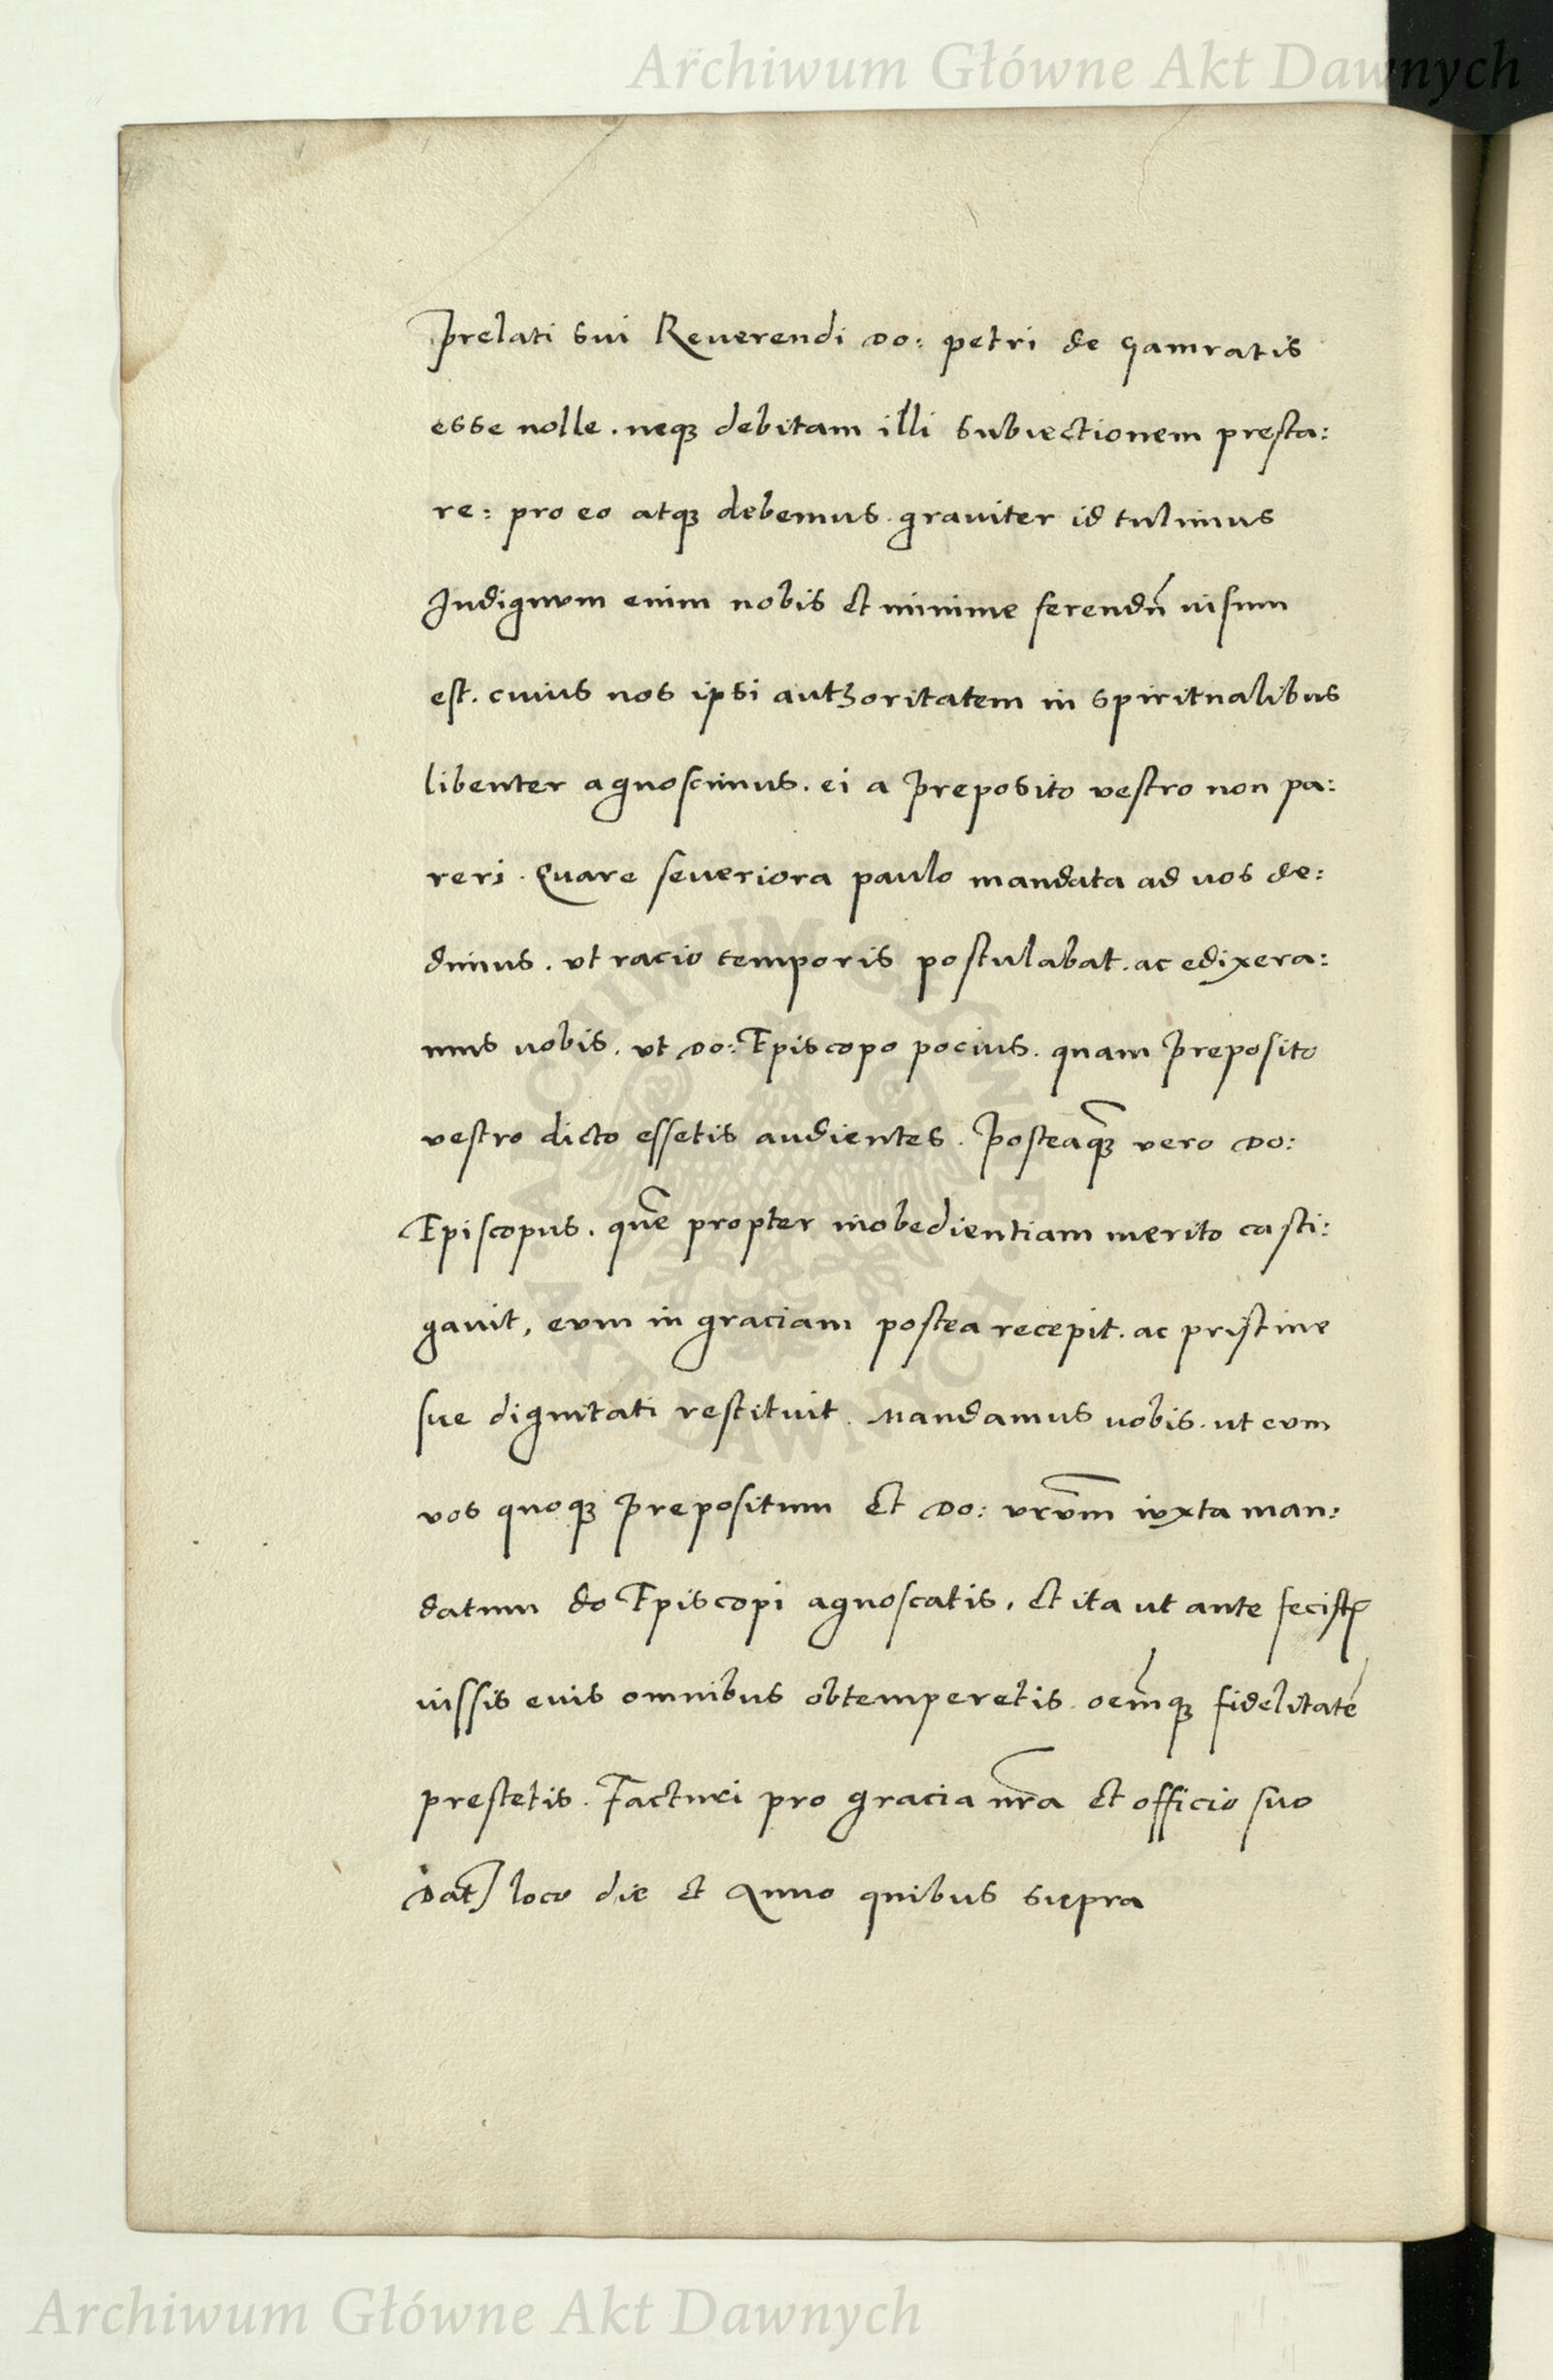 Archiwum Główne Akt Dawnych
prelati sui Reuerendi do: petri de gamratis
esse nolle . neqꝫ debitam illi subiectionem presta:
re: pro eo atqꝫ debemus . grauiter id tulimus
Indignum enim nobis et minime ferendū uisum
est . cuius nos ipsi authoritatem in spiritualibus
libenter agnoscimus . ei a preposito vestro non pa:
reri . Quare seueriora paulo mandata ad uos de:
dimus . vt racio temporis postulabat . ac edixera:
mus uobis . vt do: Episcopo pocius . quam preposito
vestro dicto essetis audientes . posteaqꝫ̄ vero do:
Episcopus . quē propter inobedientiam merito casti:
gauit, eum in graciam postea recepit . ac pristine
sue dignitati restituit . Mandamus uobis . ut eum
vos quoqꝫ prepositum et do: vrūm iuxta man:
datum do Episcopi agnoscatis . et ita ut ante fecistꝭ
iussis euis omnibus obtemperetis . oēmqꝫ fidelitatē
prestetis . Facturi pro gracia nr̄a et officio suo
Dat) loco die et Anno quibus supra
ARCHIWUM GŁÓWNE
AKT DAWNYCH
Archiwum Główne Akt Dawnych